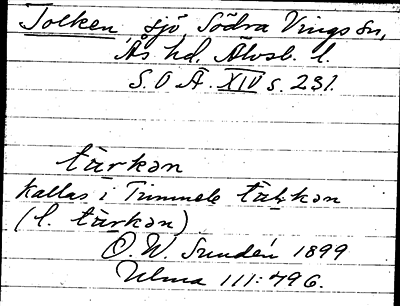 Tolken sjö, Södra Vings sn,
Ås hd, Älvsb. l.
S.O Ä. XIV s. 231.
tärkən
Kallas i Timmele täḷkən
(l. tärkən)
O. W. Sundén 1899
Ulma 111:496.